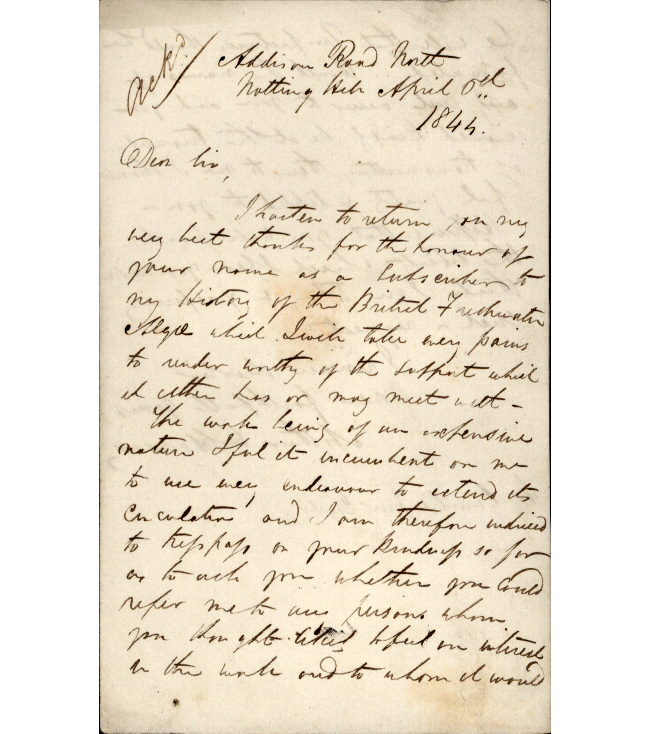 ackd/
Addison Road North
Notting Hill April
1844.
Dear Sir,
I hasten to return you my
very best thanks for the honour of
your name as a Subscriber to
my History of the British Freshwater
Algæ which I will take every pains
to render worthy of the support which
it either has or may meet with –
The work being of an expensive
nature I feel it incumbent on me
to use every endeavour to extend its
circulation and I am therefore induced
to trespass on your kindness so far
as to ask you whether you could
refer me to any persons whom
you thought likely to feel an interest
in the work and to whom it would